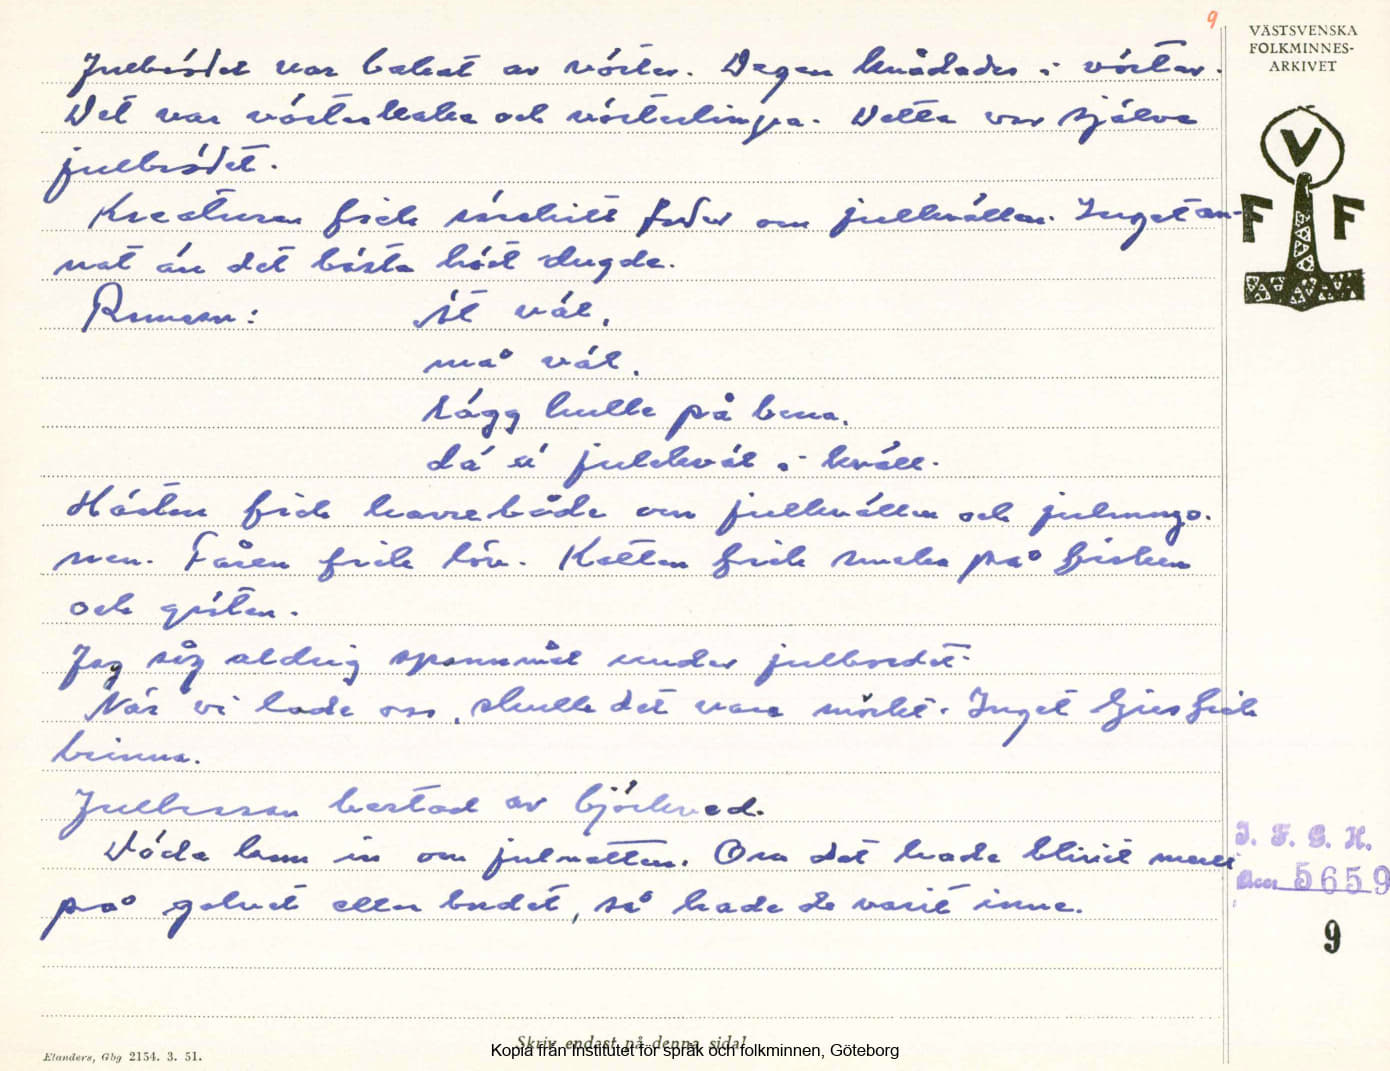 9
VÄSTSVENSKA
FOLKMINNES-
ARKIVET
V
F F
Julbrödet var bakat av vörter. Degen knådades i vörter.
Det var vörterkaka och vörterlimpa. Detta var själva
julbrödet.
Kreaturen fick särskilt foder om julkvällen. Inget an-
nat än det bästa höt dugde.
Ramsan: ät väl,
må väl,
lägg hulle på bena,
dä ä' julekväl i kväll.
Hästen fick havre både om julkvällen och julmorgo-
nen. Fåren fick löv. Katten fick smaka på fisken
och gröten.
Jag såg aldrig spannmål under julbordet.
När vi lade oss, skulle det vara mörkt. Inget ljus fick
brinna.
Julbrasan bestod av björkved.
Döda kom in om julnatten. Om det hade blivit mull
på golvet eller bordet, så hade de varit inne.
I. F. G. H.
Acc. 5659
9
Skriv endast på denna sida!
Elanders, Gbg 2154. 3. 51.
Kopia från Institutet för språk och folkminnen, Göteborg